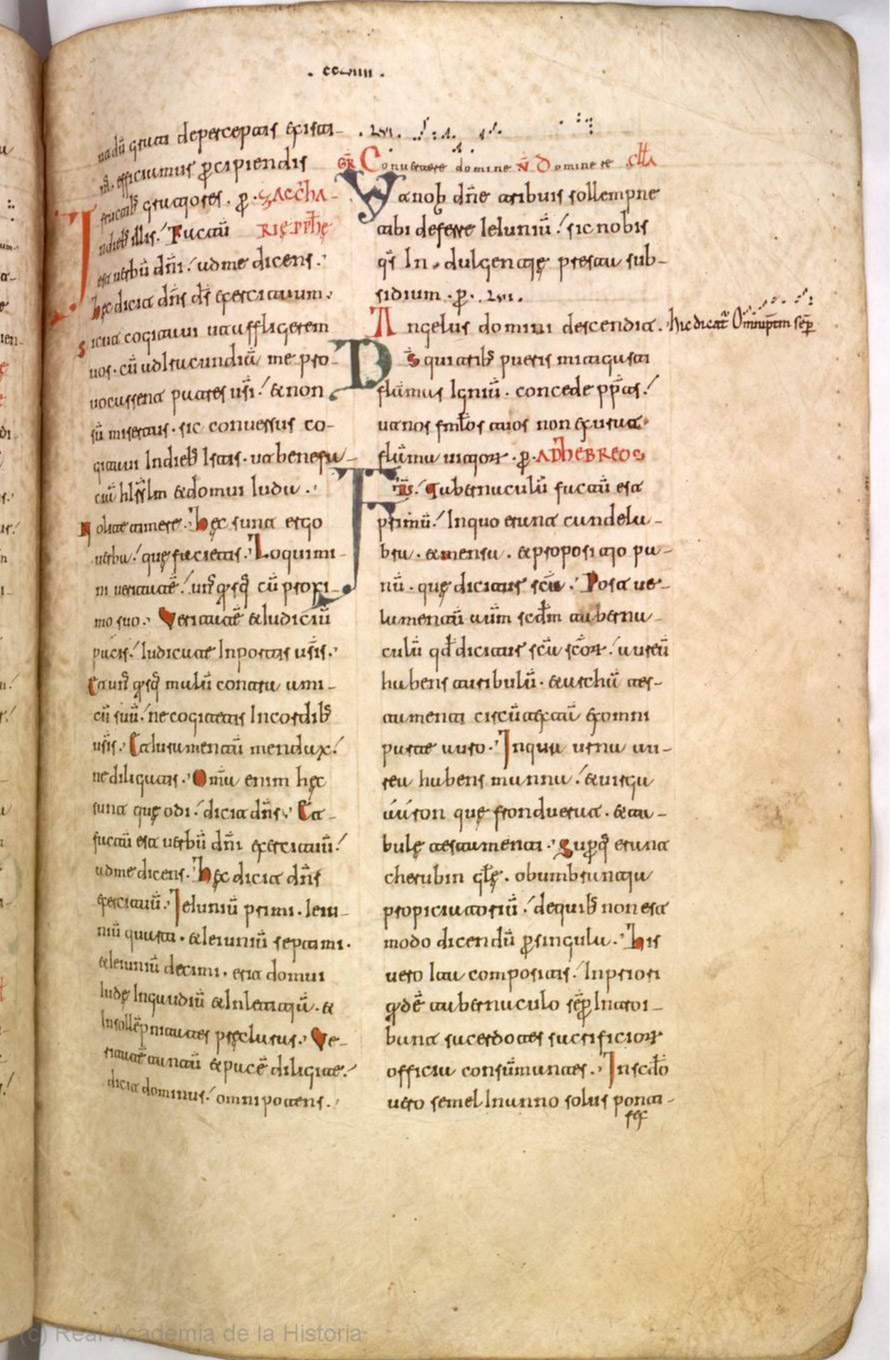 . cclviiii .
grata depceptis existi-
efficiamus pcipiendis
gratiores . p . zaccha-
In dieb; illis. Factū rie pphe
est verbū dni. ad me dicens.
hec dicit dns ds exercituum.
Sicut cogitavi ut affligerem
vos. cū ad iracundiā me pro-
vocassent patres vsi. & non
sū misertus. sic conversus co-
gitavi In dieb; Istis. ut benefa-
ciā hlrslm & domui Iuda.
Nolite timere. hec sunt ergo
verba. que facietis. Loquimi-
ni veritatē. cū proxi-
mo suo. Veritatē & Iudiciū
pacis. Iudicate In portis vsis.
Et malū contra ami-
cū suū. ne cogitetis In cordib;
vsis. Et Iuramentū mendax.
ne diligatis. Omia enim hec
sunt que odi. dicit dns. Et
factū est verbū dni exercituū.
ad me dicens. hec dicit dns
exercituū. Ieiuniū primi. Ieiu-
niū quarti. & Ieiuniū septimi.
& Ieiuniū decimi. erit domui
Iude In gaudiū & In letitiā. &
In sollēpnitates preclaras. Ve-
ritatē tantū & pacē diligite.
dicit dominus. omnipotens.
. lvi.
GR Convertere domine V Domine re clla
Ut a nob dne tribuis sollempne
tibi deferre Ieiuniū. sic nobis
qs Indulgentie presta sub-
sidium. p. lvi.
Angelus domini descendit. hic dicat Omnipotem semp
Ds qui trib; pueris mitigasti
flāmas Igniū. concede ppitius.
ut nos famlos tuos non exurat
flāma vitior. p. ad hebreos
Frs. Tabernaculū factū est
primū. In quo erant candela-
bra. & mensa. & propositio pa-
nū. que dicitur scā. Post ve-
lamentū autm scdm taberna-
culū qd dicitur scā scor. aureū
habens turibulū. & archā tes-
tamenti circūtectā ex omni
parte auro. In qua urna au-
rea habens manna. & virga
aaron que fronduerat. & ta-
bule testamenti. Supq; erant
cherubin gle. obumbrantia
propiciatoriū. de quib; non est
modo dicendū p singula. his
vero Ita compositis. In priori
qdē tabernaculo sēp Introi-
bant sacerdotes sacrificior
officia consūmantes. In scdo
vero semel In anno solus ponti-
fex
(c) Real Academia de la Historia